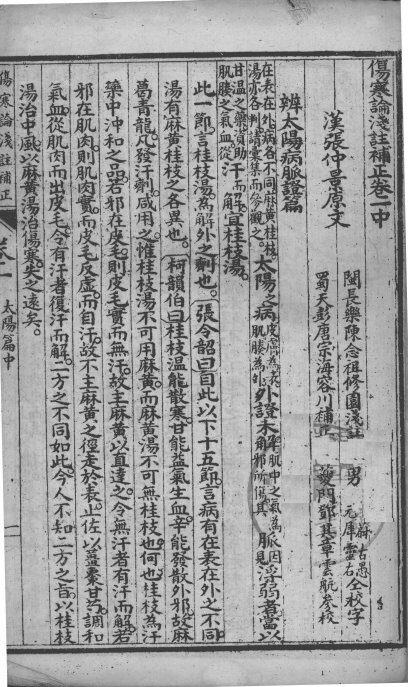 傷寒論淺註補正卷一中
漢張仲景原文
閩長樂陳念祖修園淺註
蜀天彭唐宗海容川補正
男 元犀靈石 蔚古愚 仝校字
夔門鄧其章雲航參校
辨太陽病脈證篇
太陽之病皮膚為表肌腠為外外證未解肌中之氣為邪所傷其脈因見浮弱者當以
甘溫之藥資助肌腠之氣血從汗而解宜桂枝湯
在表在外病各不同麻黃桂枝湯亦各判請彙集而參觀之
此一節言桂枝湯為解外之劑也張令韶曰自此以下十五節言病有在表在外之不同
湯有麻黃桂枝之各異也柯韻伯曰桂枝溫能散寒甘能益氣生血辛能發散外邪故麻
葛青龍凡發汗劑咸用之惟桂枝湯不可用麻黃而麻黃湯不可無桂枝也何也桂枝為汗
藥中沖和之品若邪在皮毛則皮毛實而無汗故主麻黃以直達之令無汗者有汗而解若
邪在肌肉則肌肉實而皮毛反虛而自汗故不主麻黃之徑走於表止佐以薑棗甘芍調和
氣血從肌肉而出皮毛令有汗者復汗而解二方之不同如此今人不知二方之旨以桂枝
湯治中風以麻黃湯治傷寒失之遠矣
傷寒論淺註補正
卷一
太陽篇中